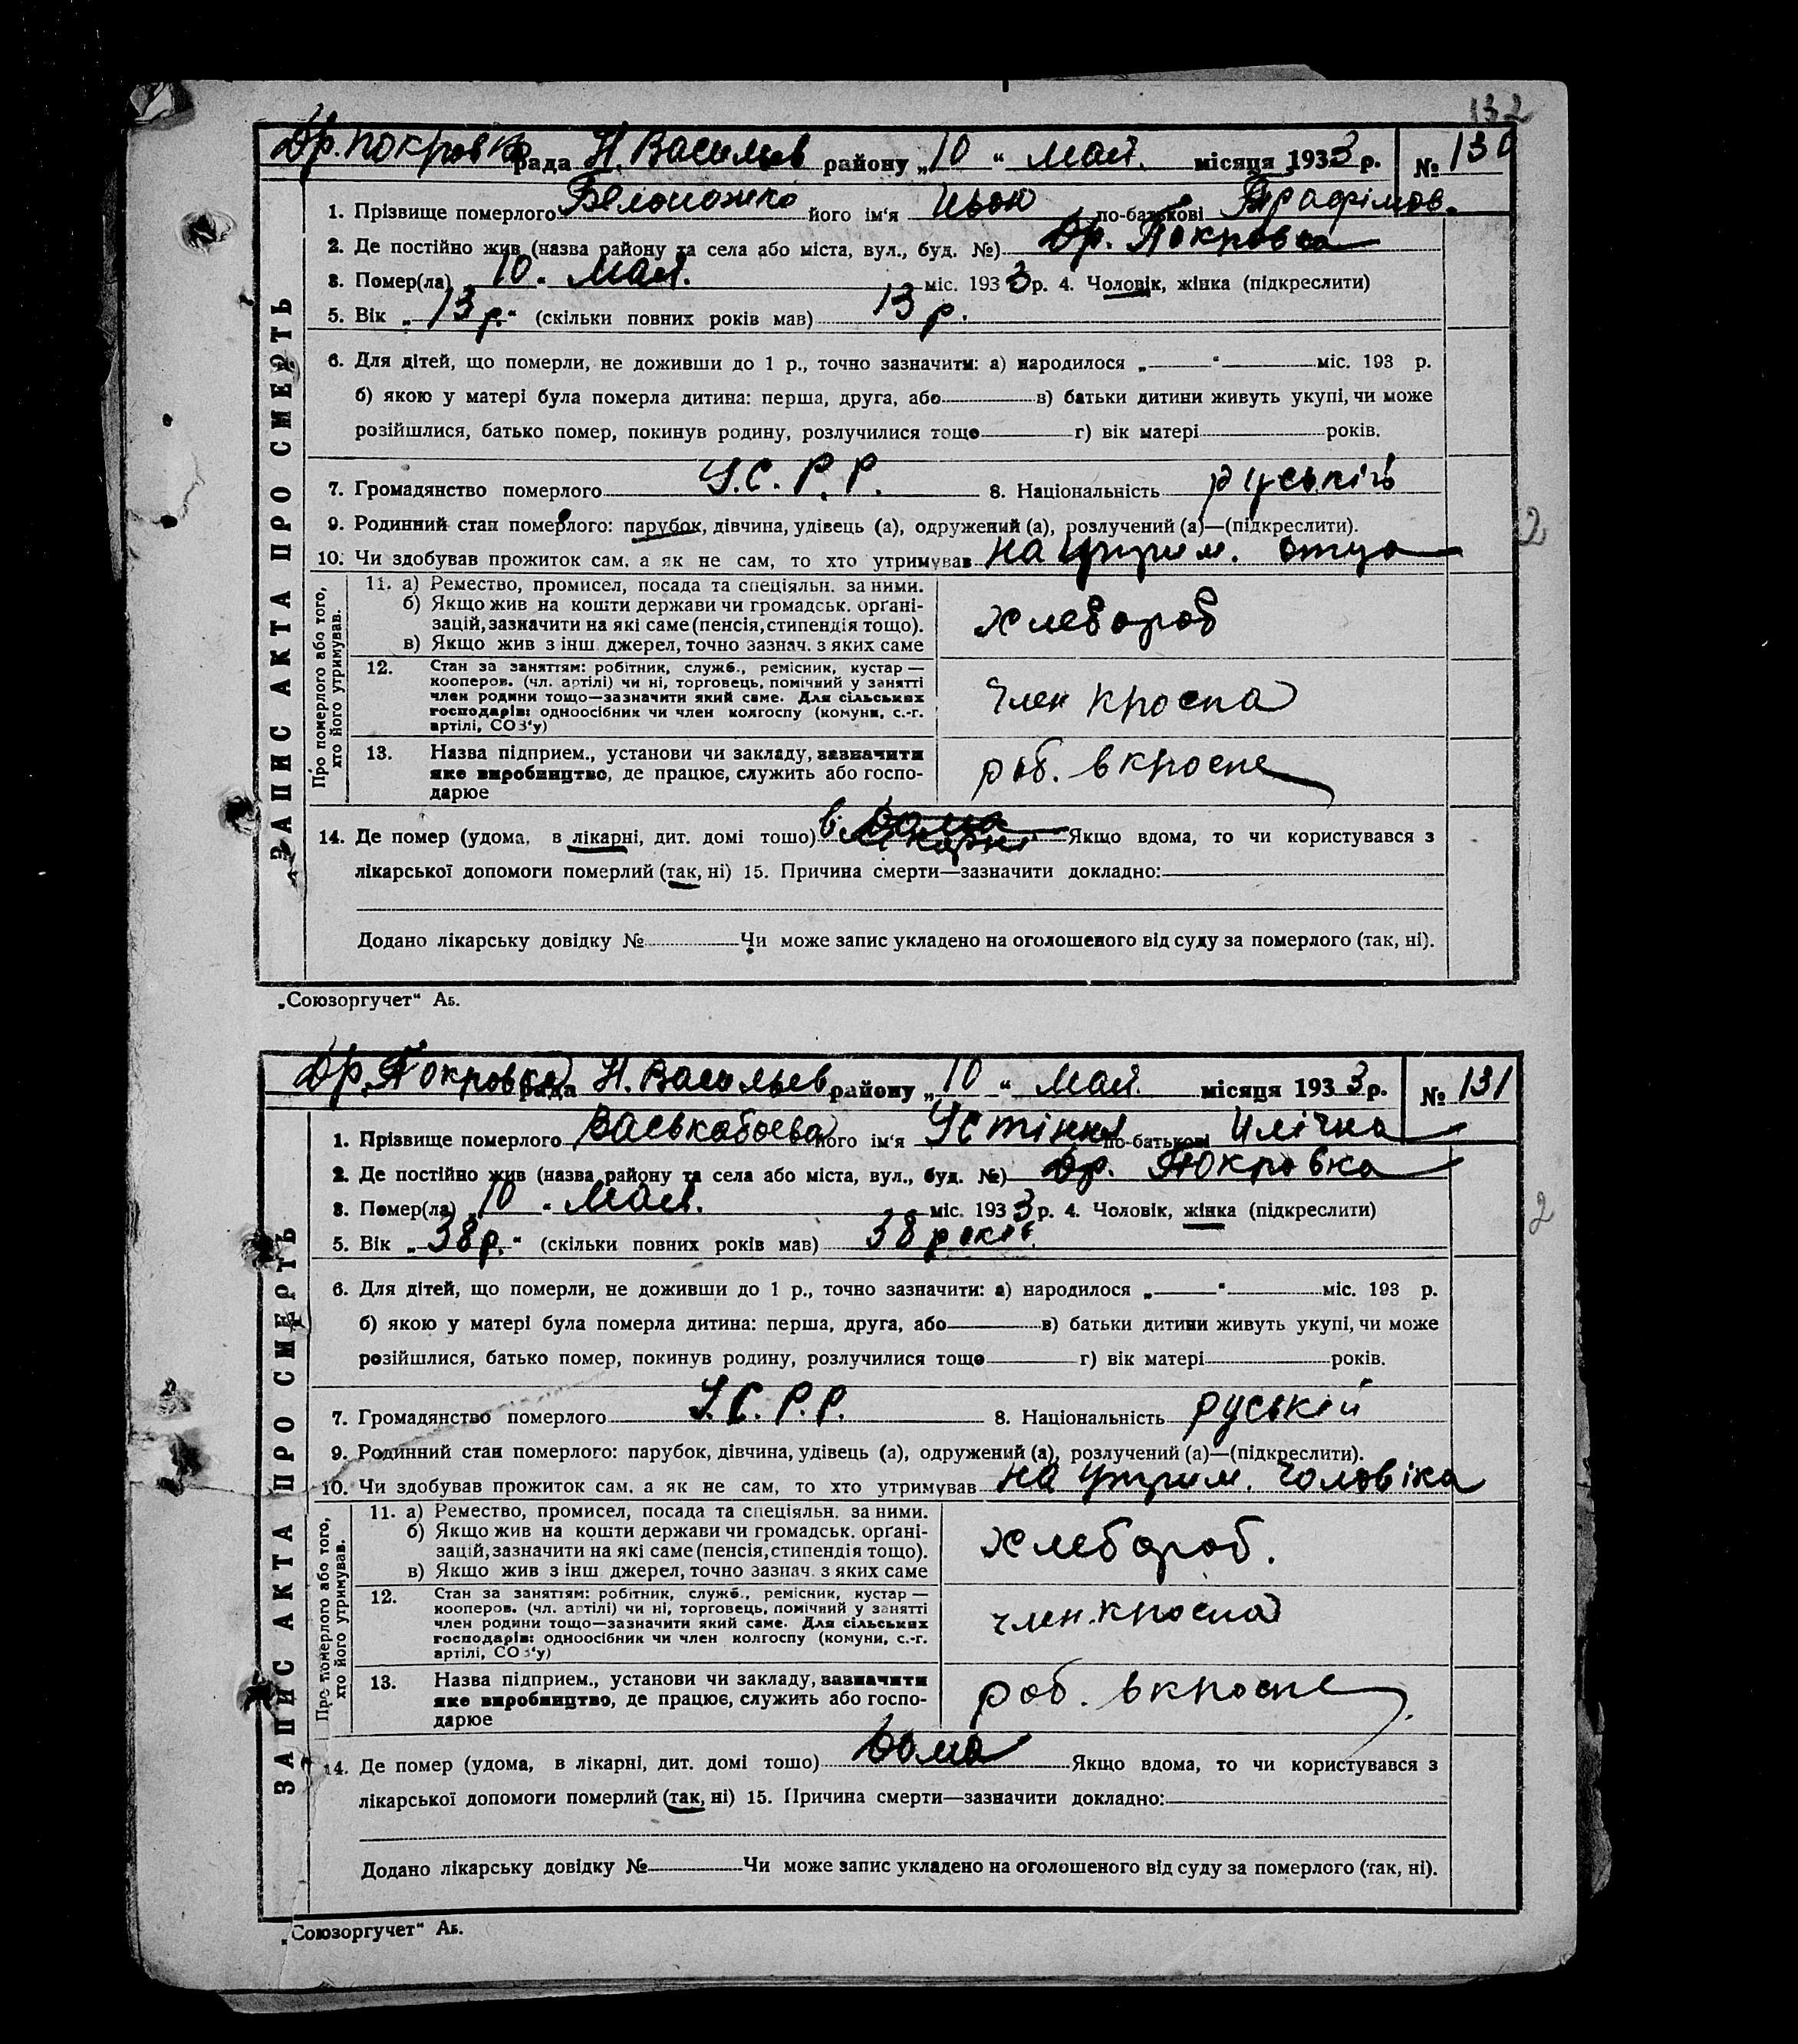 132
Др. Покровка рада Н. Васильев району „10“ мая. місяця 1933 р. № 130
1. Прізвище померлого Белоножко його ім'я по-батькові Трафімов.
2. Де постійно жив (назва району та села або міста, вул., буд. №) Др. Покровка
3. Помер(ла) „10“ Мая. міс. 1933 р. 4. Чоловік, жінка (підкреслити)
5. Вік „13 р.“ (скільки повних років мав) 13 р.
6. Для дітей, що померли, не доживши до 1 р., точно зазначити: а) народилося „ “ міс. 193 р.
б) якою у матері була померла дитина: перша, друга, або в) батьки дитини живуть укупі, чи може
розійшлися, батько помер, покинув родину, розлучилися тощо г) вік матері років.
7. Громадянство померлого У.С.Р.Р. 8. Національність руській
9. Родинний стан померлого: парубок, дівчина, удівець (а), одружений (а), розлучений (а)—(підкреслити).
10. Чи здобував прожиток сам, а як не сам, то хто утримував на утрим. отца
ЗАПИС АКТА ПРО СМЕРТЬ
Про померлого або того,
хто його утримував.
11. а) Ремество, промисел, посада та спеціяльн. за ними.
б) Якщо жив на кошти держави чи громадськ. орґані-
зацій, зазначити на які саме (пенсія, стипендія тощо).
в) Якщо жив з інш. джерел, точно зазнач. з яких саме
хлебороб
12. Стан за заняттям: робітник, служб., ремісник, кустар —
кооперов. (чл. артілі) чи ні, торговець, помічний у занятті
член родини тощо—зазначити який саме. Для сільських
господарів: одноосібник чи член колгоспу (комуни, с.-г.
артілі, СОЗ'у)
член
13. Назва підприєм., установи чи закладу, зазначити
яке виробництво, де працює, служить або госпо-
дарює
роб. в
14. Де помер (удома, в лікарні, дит. домі тощо) в дома лікарні Якщо вдома, то чи користувався з
лікарської допомоги померлий (так, ні) 15. Причина смерти—зазначити докладно:
Додано лікарську довідку № Чи може запис укладено на оголошеного від суду за померлого (так, ні).
„Союзоргучет“ Аб.
2
Др. Покровка рада Н. Васильев району „10“ мая. місяця 1933 р. № 131
1. Прізвище померлого Васькабоева його ім'я Устіння по-батькові Илічна
2. Де постійно жив (назва району та села або міста, вул., буд. №) Др. Покровка
3. Помер(ла) „10“ Мая. міс. 1933 р. 4. Чоловік, жінка (підкреслити)
5. Вік „38 р.“ (скільки повних років мав) 38 років.
6. Для дітей, що померли, не доживши до 1 р., точно зазначити: а) народилося „ “ міс. 193 р.
б) якою у матері була померла дитина: перша, друга, або в) батьки дитини живуть укупі, чи може
розійшлися, батько помер, покинув родину, розлучилися тощо г) вік матері років.
7. Громадянство померлого У.С.Р.Р. 8. Національність руській
9. Родинний стан померлого: парубок, дівчина, удівець (а), одружений (а), розлучений (а)—(підкреслити).
10. Чи здобував прожиток сам, а як не сам, то хто утримував на утрим. чоловіка
ЗАПИС АКТА ПРО СМЕРТЬ
Про померлого або того,
хто його утримував.
11. а) Ремество, промисел, посада та спеціяльн. за ними.
б) Якщо жив на кошти держави чи громадськ. орґані-
зацій, зазначити на які саме (пенсія, стипендія тощо).
в) Якщо жив з інш. джерел, точно зазнач. з яких саме
хлебороб.
12. Стан за заняттям: робітник, служб., ремісник, кустар —
кооперов. (чл. артілі) чи ні, торговець, помічний у занятті
член родини тощо—зазначити який саме. Для сільських
господарів: одноосібник чи член колгоспу (комуни, с.-г.
артілі, СОЗ'у)
член.
13. Назва підприєм., установи чи закладу, зазначити
яке виробництво, де працює, служить або госпо-
дарює
роб. в
14. Де помер (удома, в лікарні, дит. домі тощо) дома Якщо вдома, то чи користувався з
лікарської допомоги померлий (так, ні) 15. Причина смерти—зазначити докладно:
Додано лікарську довідку № Чи може запис укладено на оголошеного від суду за померлого (так, ні).
„Союзоргучет“ Аб.
2